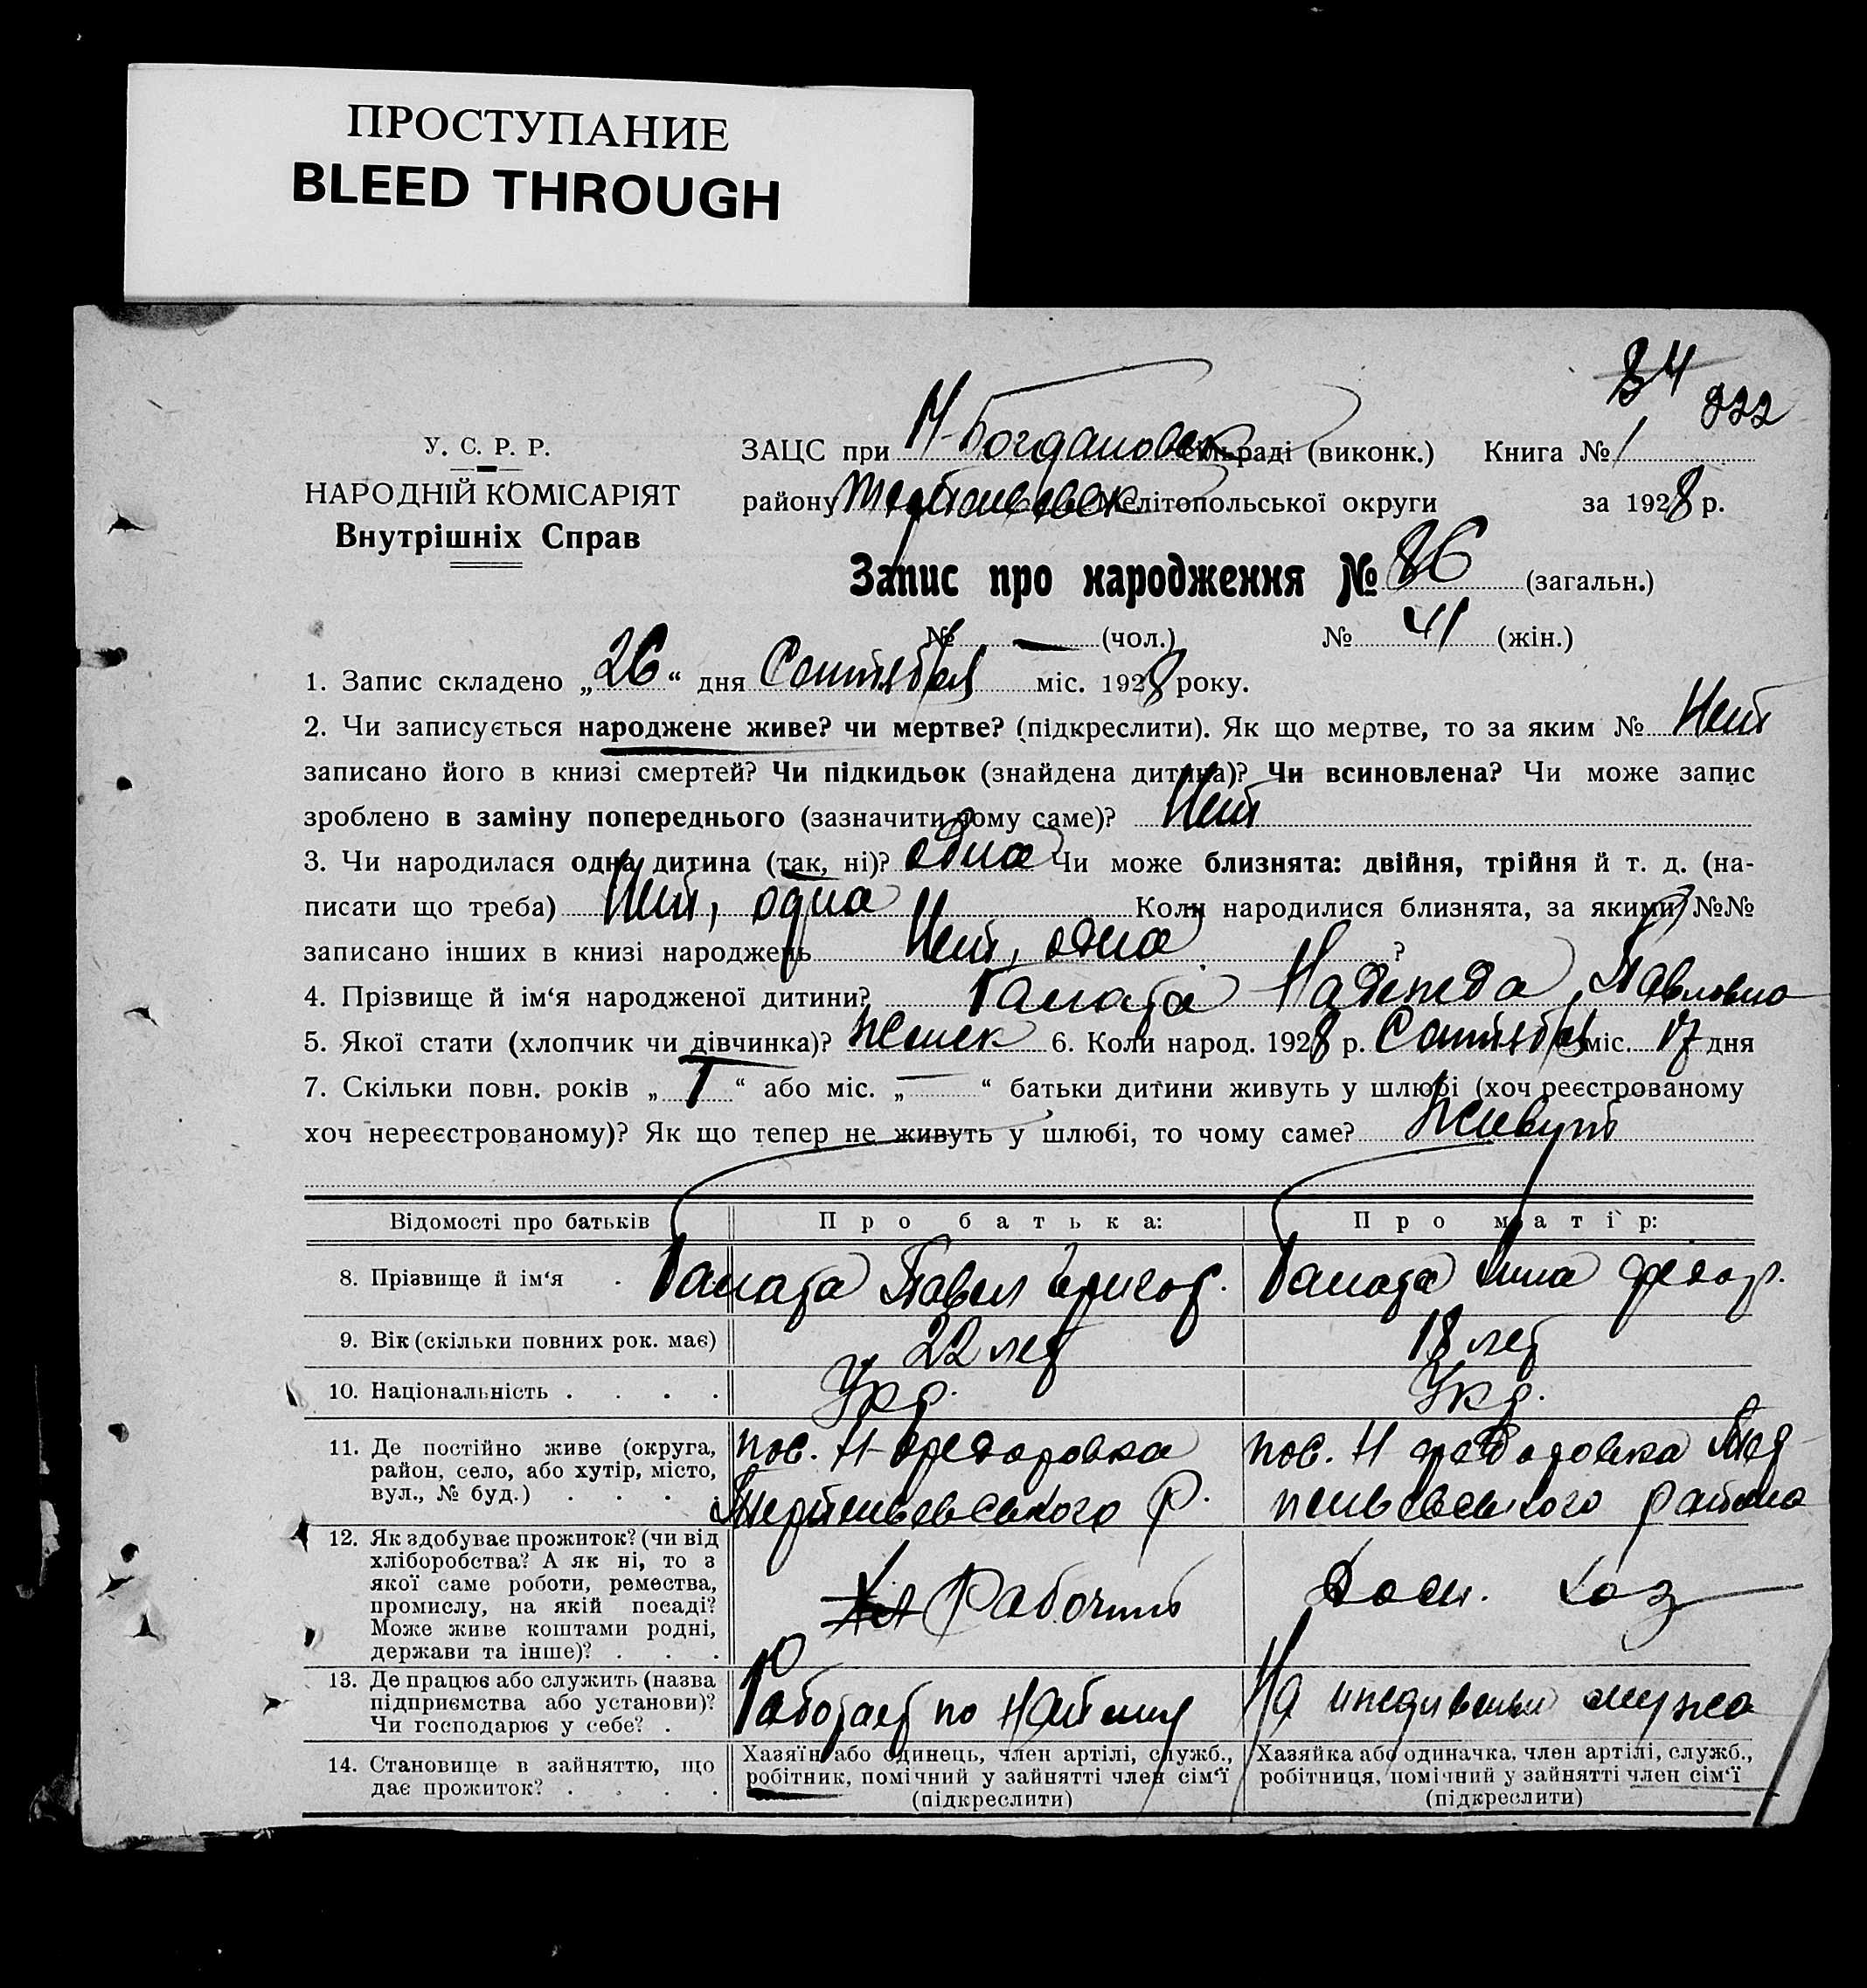 ПРОСТУПАНИЕ
BLEED THROUGH
84
222
У. С. Р. Р.
НАРОДНІЙ КОМІСАРІЯТ
Внутрішніх Справ
ЗАЦС при М-Богдановск сільраді (виконк.) Книга № 1
району Терпеньевск Мелітопольської округи за 1928 р.
Запис про народження № 86 (загальн.)
№ — (чол.) № 41 (жін.)
1. Запис складено „26“ дня Сентября міс. 1928 року.
2. Чи записується народжене живе? чи мертве? (підкреслити). Як що мертве, то за яким № Нет
записано його в книзі смертей? Чи підкидьок (знайдена дитина)? Чи всиновлена? Чи може запис
зроблено в заміну попереднього (зазначити чому саме)? Нет
3. Чи народилася одна дитина (так, ні)? одна Чи може близнята: двійня, трійня й т. д. (на-
писати що треба) Нет, одна Коли народилися близнята, за якими №№
записано інших в книзі народжень Нет, одна ?
4. Прізвище й ім‘я народженої дитини? Надежда Павловна
5. Якої стати (хлопчик чи дівчинка)? женск 6. Коли народ. 1928 р. Сентября міс. 17 дня
7. Скільки повн. років „1“ або міс. „—“ батьки дитини живуть у шлюбі (хоч реєстрованому
хоч нереєстрованому)? Як що тепер не живуть у шлюбі, то чому саме? Живут
Відомості про батьків Про батька: Про матір:
8. Прізвище й ім‘я . Павел Григор. Анна Федор.
9. Вік (скільки повних рок. має) 22 лет 18 лет
10. Національність . . . . Укр. Укр.
11. Де постійно живе (округа,
район, село, або хутір, місто,
вул., № буд.) . . . .
пос. Н-Федоровка
Терпеньевского Р.
пос. Н Федоровка Тер
пеньевского района
12. Як здобуває прожиток? (чи від
хліборобства? А як ні, то з
якої саме роботи, ремества,
промислу, на якій посаді?
Може живе коштами родні,
держави та інше)? . . .
Рабочий
Дом. хоз
13. Де працює або служить (назва
підприємства або установи)?
Чи господарює у себе? .
Работает по найму
На иждивении мужа
14. Становище в зайняттю, що
дає прожиток? . . . .
Хазяїн або одинець, член артілі, служб.,
робітник, помічний у зайнятті член сім‘ї
(підкреслити)
Хазяйка або одиначка, член артілі, служб.,
робітниця, помічний у зайнятті член сім‘ї
(підкреслити)